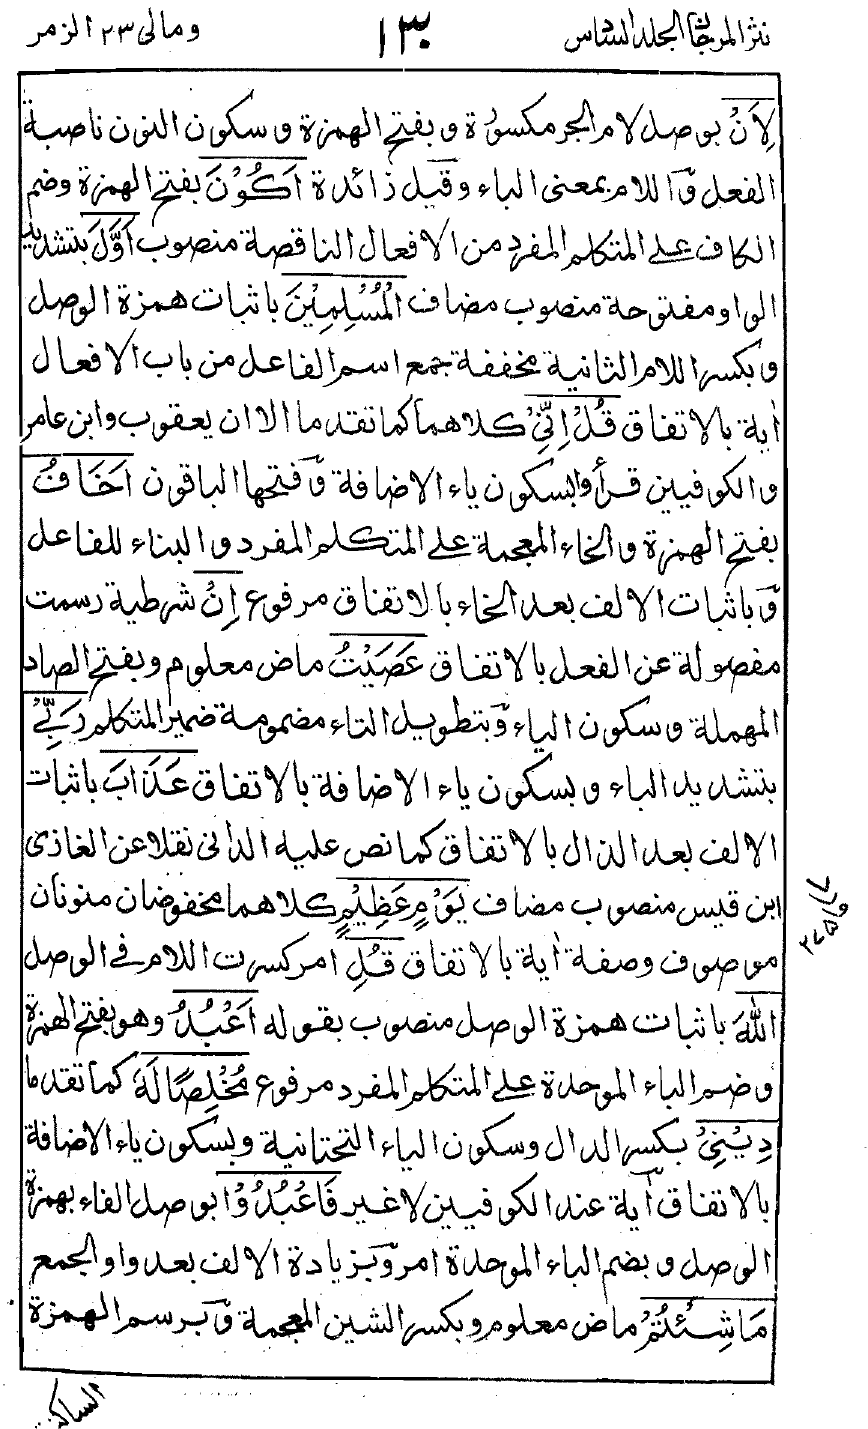 نثر المرجان الجلد السادس ١٣٠ ومالى ٢٣ الزمر
لِاَنْ بوصل لام الجر مكسورة وبفتح الهمزة وسكون النون ناصبة
الفعل وّاللام بمعنى الباء وقيل زائدة اَكُوْنَ بفتح الهمزة وضم
الكاف على المتكلم المفرد من الافعال الناقصة منصوب اَوَّلَ بتشديد
الواو مفتوحة منصوب مضاف الْمُسْلِمِيْنَ باثبات همزة الوصل
وبكسر اللام الثانية مخففة جمع اسم الفاعل من باب الافعال
اٰية بالاتفاق قُلْ اِنِّيْ كلاهما كما تقدما الا ان يعقوب وابن عامر
والكوفيين قرأوا بسكون ياء الاضافة وّفتحها الباقون اَخَافُ
بفتح الهمزة والخاء المعجمة على المتكلم المفرد والبناء للفاعل
وّباثبات الالف بعد الخاء بالاتفاق مرفوع اِنْ شرطية رسمت
مفصولة عن الفعل بالاتفاق عَصَيْتُ ماض معلوم وبفتح الصاد
المهملة وسكون الياء وّبتطويل التاء مضمومة ضمير المتكلم رَبِّيْ
بتشديد الباء وبسكون ياء الاضافة بالاتفاق عَذَابَ باثبات
الالف بعد الذال بالاتفاق كما نص عليه الدانى نقلا عن الغازى
ابن قيس منصوب مضاف يَوْمٍ عَظِيْمٍ كلاهما مخفوضان منونان
موصوف وصفة اٰية بالاتفاق قُلِ امر كسرت اللام فى الوصل
اللّٰهَ باثبات همزة الوصل منصوب بقوله اَعْبُدُ وهو بفتح الهمزة
وضم الباء الموحدة على المتكلم المفرد مرفوع مُخْلِصًا لَهٗ كما تقدما
دِيْنِيْ بكسر الدال وسكون الياء التحتانية وبسكون ياء الاضافة
بالاتفاق اٰية عند الكوفيين لا غير فَاعْبُدُوْا بوصل الفاء بهمزة
الوصل وبضم الباء الموحدة امر وّبزيادة الالف بعد واو الجمع
مَا شِئْتُمْ ماض معلوم وبكسر الشين المعجمة وّبرسم الهمزة
الساكنة